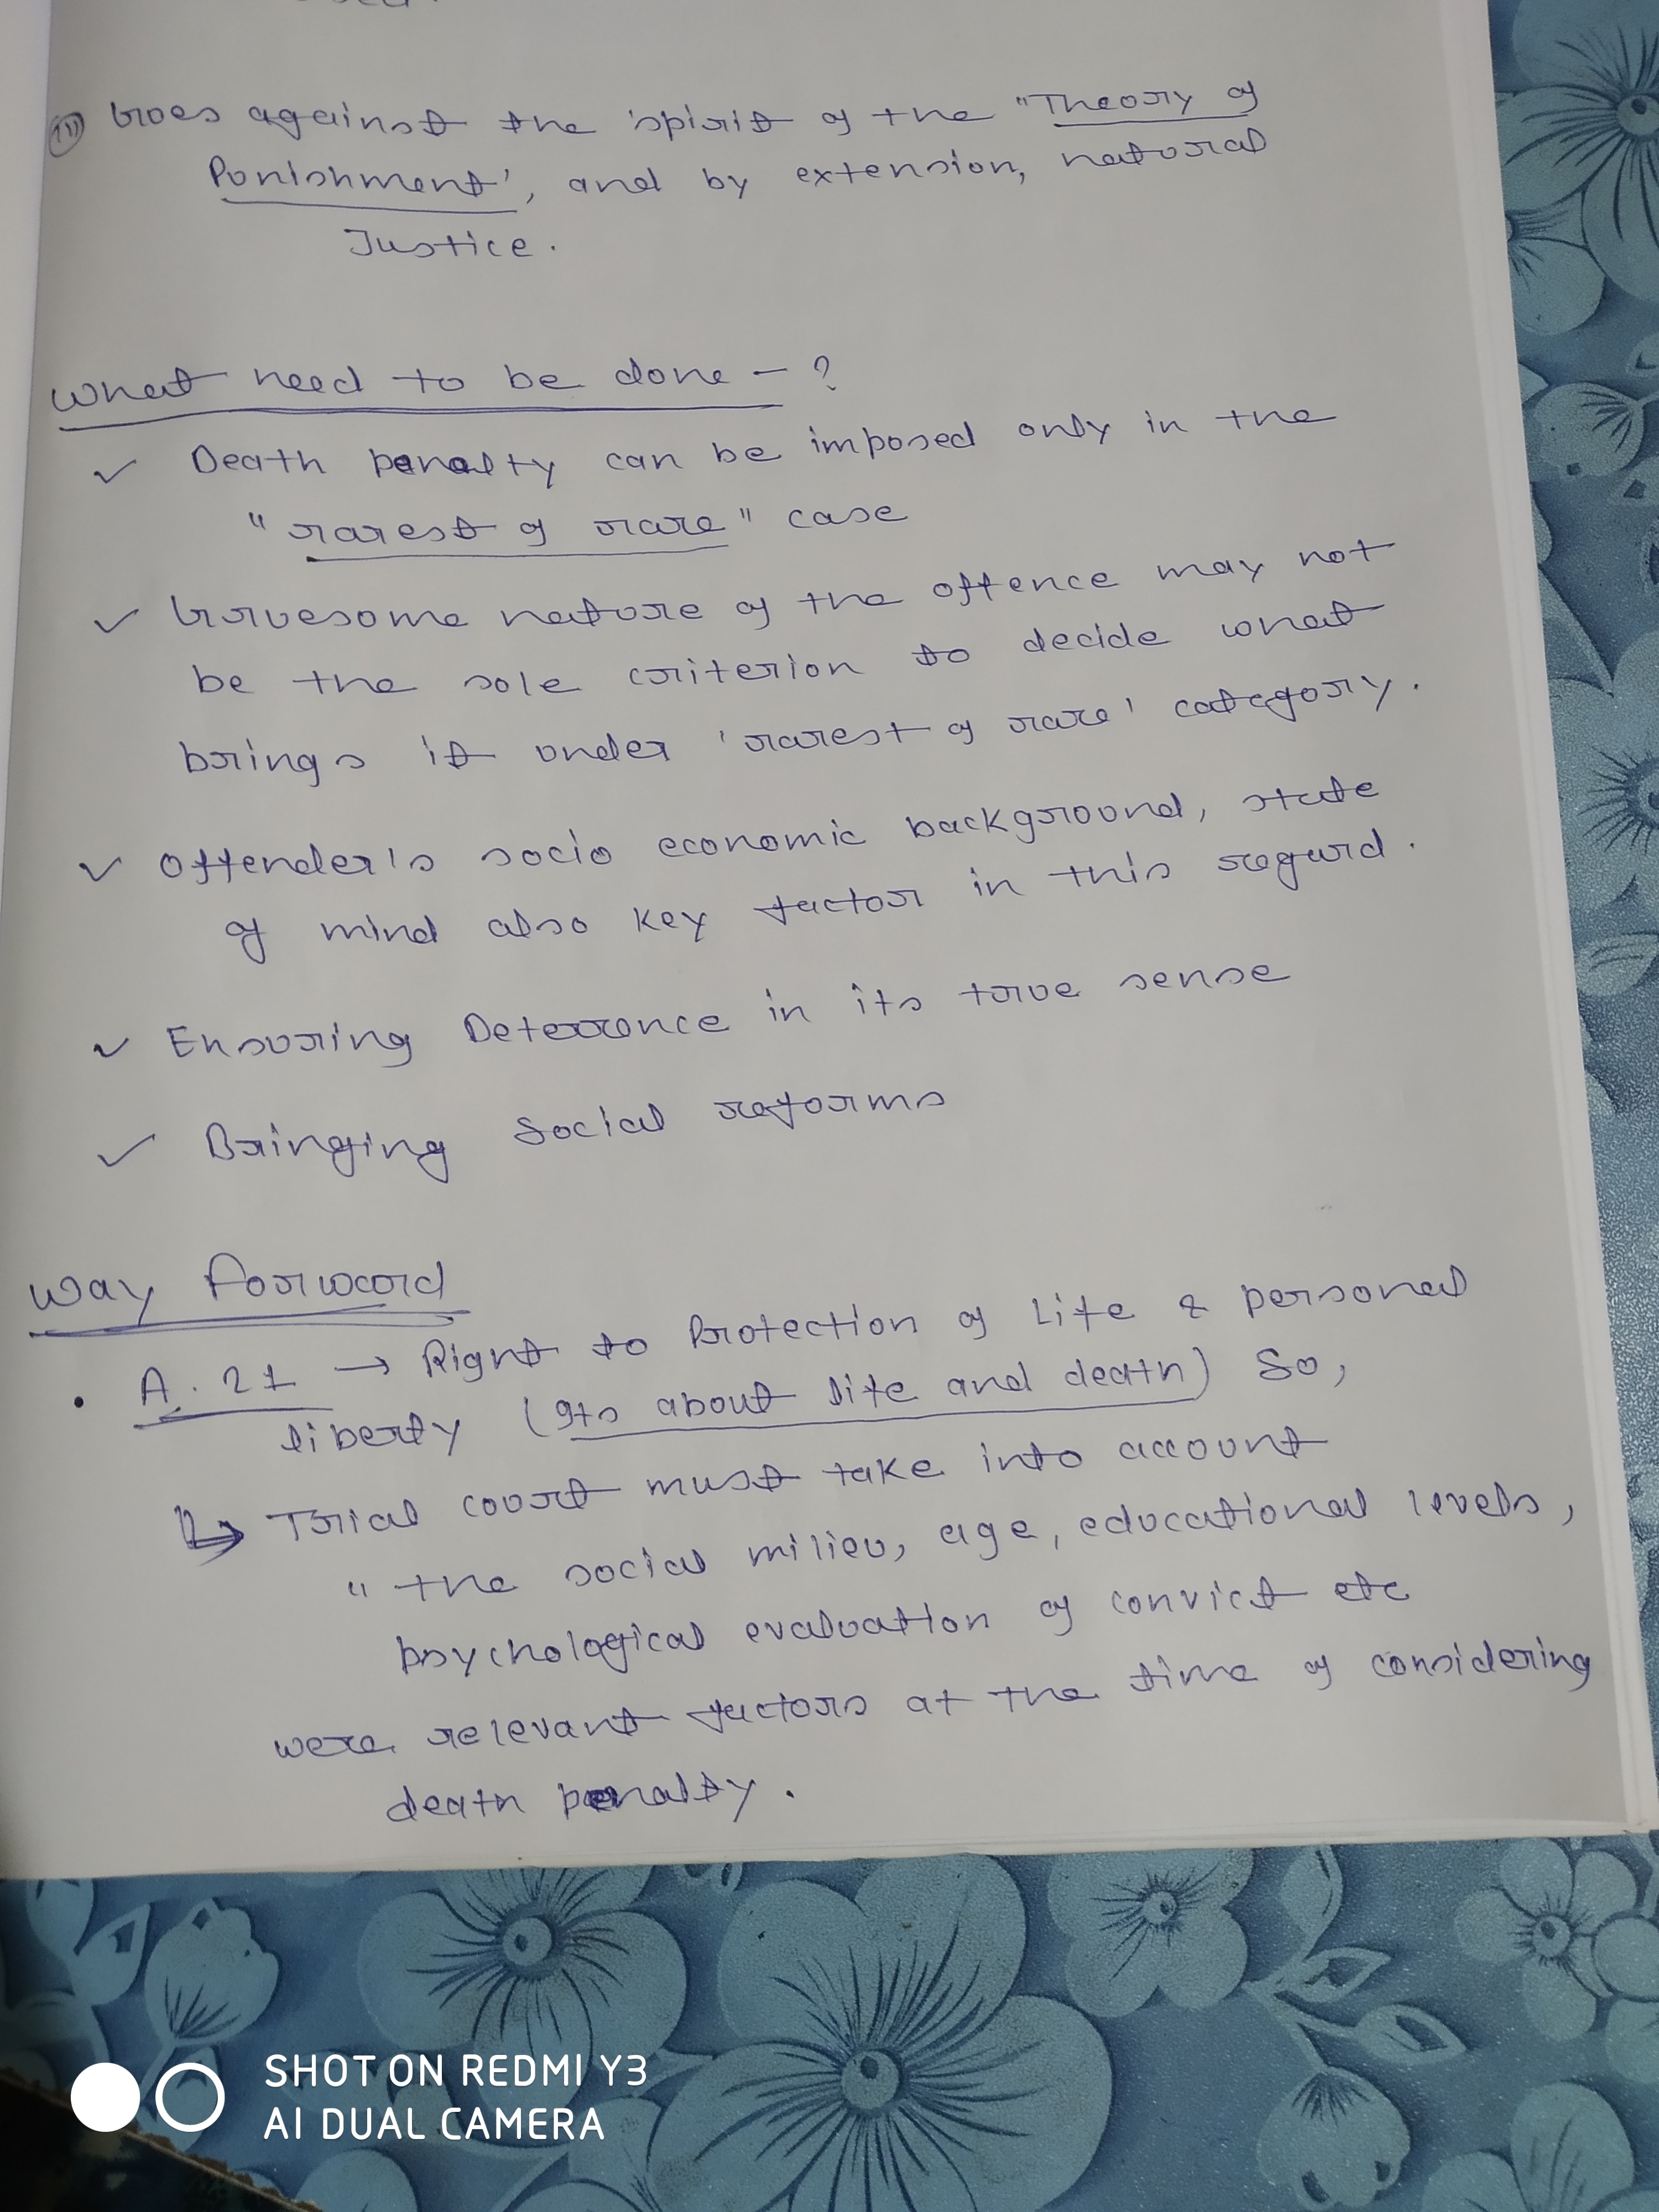 (iii) Goes against the 'spirit of the "Theory of
Punishment', and by extension, natural
Justice.
What need to be done - ?
✓ Death penalty can be imposed only in the
"rarest of rare" case
✓ Gruesome nature of the offence may not
be the sole criterion to decide what
brings it under 'rarest of rare' category.
✓ Offender's socio economic background, state
of mind also key factor in this regard.
✓ Ensuring Deterrence in its true sense
✓ Bringing social reforms
Way Forward
• A. 21 → Right to Protection of Life & personal
liberty (Its about life and death) So,
↳ Trial court must take into account
"the social milieu, age, educational levels,
psychological evaluation of convict etc
were relevant factors at the time of considering
death penalty.
SHOT ON REDMI Y3
AI DUAL CAMERA